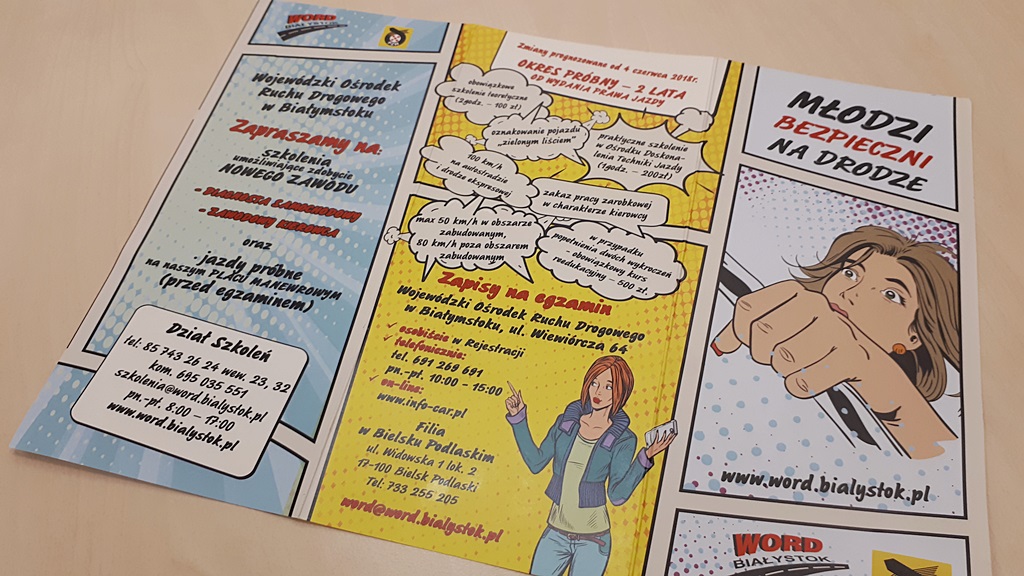 WORD
BIAŁYSTOK
Wojewódzki Ośrodek
Ruchu Drogowego
w Białymstoku
Zapraszamy na:
szkolenia
umożliwiające zdobycie
NOWEGO ZAWODU
- ZAWODOWY KIEROWCA
oraz
- jazdy próbne
na naszym PLACU MANEWROWYM
(przed egzaminem)
Dział Szkoleń
tel: 85 743 26 24 wew. 23, 32
kom. 695 035 551
szkolenia@word.bialystok.pl
pn.-pt. 8:00 – 17:00
www.word.bialystok.pl
Zmiany prognozowane od 4 czerwca 2018r.
OKRES PRÓBNY – 2 LATA
OD WYDANIA PRAWA JAZDY
obowiązkowe
szkolenie teoretyczne
(2godz. – 100 zł)
oznakowanie pojazdu
„zielonym liściem”
praktyczne szkolenie
w Ośrodku Doskona-
lenia Techniki Jazdy
(1godz. – 200zł)
100 km/h
na autostradzie
i drodze ekspresowej
zakaz pracy zarobkowej
w charakterze kierowcy
max 50 km/h w obszarze
zabudowanym,
80 km/h poza obszarem
zabudowanym
w przypadku
popełnienia dwóch wykroczeń
obowiązkowy kurs
reedukacyjny – 500 zł.
Zapisy na egzamin
Wojewódzki Ośrodek Ruchu Drogowego
w Białymstoku, ul. Wiewiórcza 64
✓ osobiście w Rejestracji
✓ telefonicznie:
tel. 691 269 691
pn.-pt. 10:00 – 15:00
✓ on-line:
www.info-car.pl
Filia
w Bielsku Podlaskim
ul. Widowska 1 lok. 2
17-100 Bielsk Podlaski
Tel: 733 255 205
word@word.bialystok.pl
MŁODZI
BEZPIECZNI
NA DRODZE
www.word.bialystok.pl
WORD
BIAŁYSTOK